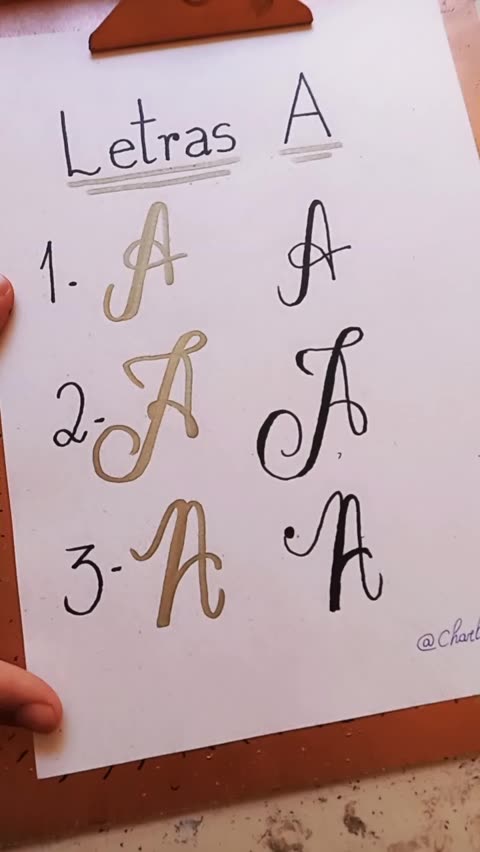 Letras A
1. A A
2- A A
3- A A